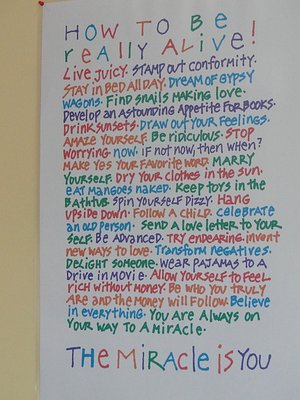 HOW TO Be
really ALIVE!
Live juicy. STAMP OUT CONFORMITY.
STAY iN BED ALL DAY. DREAM OF GYPSY
WAGONS. FiND SNAiLS MAKiNG LOVE.
Develop an Astounding Appetite For Books.
DRiNK SUNSETS. DRAW OUT YOUR FEELiNGS.
AMAZE YOURSELF. Be RiDiCULOUS. STOP
WORRYiNG NOW. iF NOT NOW, THEN WHEN?
MAKE YES YOUR FAVORiTE WORD. MARRY
YOURSELF. DRY YOUR CLOTHES iN THE SUN.
EAT MANGOES NAKED. KEEP TOYS iN THE
BATHTUB. SPiN YOURSELF DiZZY. HANG
UPSiDE DOWN. FOLLOW A CHiLD. CELEBRATE
AN OLD PERSON. SEND A LOVE LETTER TO YOUR
SELF. Be ADVANCED. TRY ENDEARiNG. iNVENT
NEW WAYS TO LOVE. TRANSFORM NEGATiVES.
DELiGHT SOMEONE. WEAR PAJAMAS TO A
DRiVE iN MOViE. ALLOW YOURSELF TO FEEL
RiCH WiTHOUT MONEY. Be WHO YOU TRULY
ARE AND THE MONEY WiLL FOLLOW. BELiEVE
iN EVERYTHiNG. YOU ARE ALWAYS ON
YOUR WAY TO A MiRACLE.
THE MiRACLE iS YOU